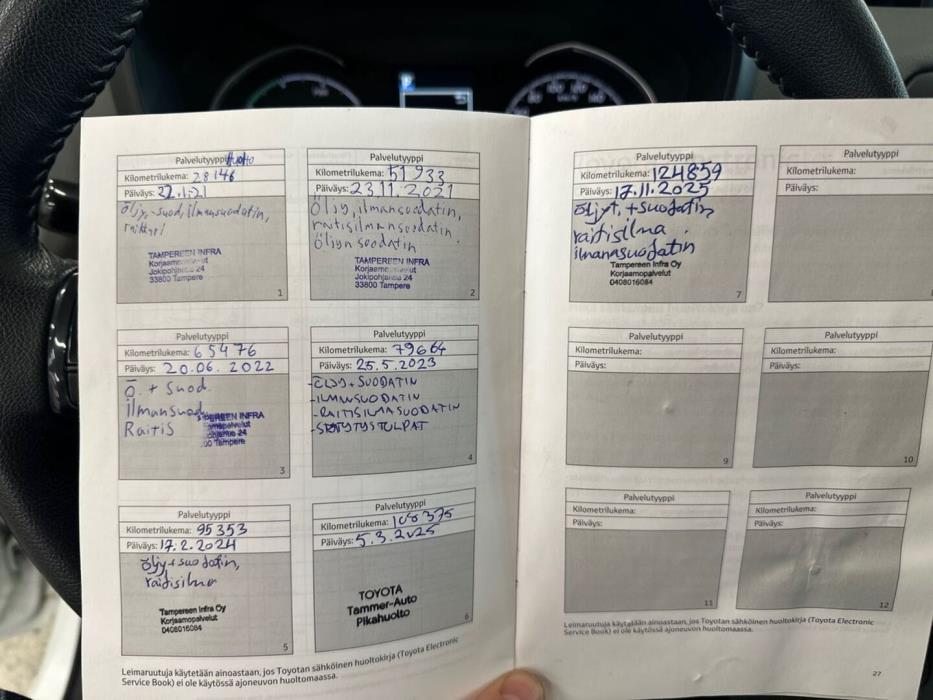 Palvelutyyppi Huolto
Kilometrilukema: 28146
Päiväys: 27.1.21
öljy, -suod, ilmansuodatin,
TAMPEREEN INFRA
Jokipohjantie 24
33800 Tampere
1
Palvelutyyppi
Kilometrilukema: 51933
Päiväys: 23.11.2021
Öljy, ilmansuodatin,
raitisilmansuodatin
öljynsuodatin
TAMPEREEN INFRA
Jokipohjantie 24
33800 Tampere
2
Palvelutyyppi
Kilometrilukema: 65476
Päiväys: 20.06.2022
Ö. + Suod.
ilmansuod
Raitis
INFRA
Tampere
3
Palvelutyyppi
Kilometrilukema: 79664
Päiväys: 25.5.2023
-ÖLJY+SUODATIN
-ILMANSUODATIN
-RAITISILMASUODATIN
-SYTYTYSTULPAT
4
Palvelutyyppi
Kilometrilukema: 95353
Päiväys: 17.2.2024
öljy+suodatin,
raitisilma
Tampereen Infra Oy
Korjaamopalvelut
0408016084
5
Palvelutyyppi
Kilometrilukema: 108375
Päiväys: 5.3.2025
TOYOTA
Tammer-Auto
Pikahuolto
6
Leimaruutuja käytetään ainoastaan, jos Toyotan sähköinen huoltokirja (Toyota Electronic
Service Book) ei ole käytössä ajoneuvon huoltomaassa.
Palvelutyyppi
Kilometrilukema: 124859
Päiväys: 17.11.2025
öljyt. +suodatin
raitisilma
ilmanasuodatin
Tampereen Infra Oy
Korjaamopalvelut
0408016084
7
Palvelutyyppi
Kilometrilukema:
Päiväys:
Palvelutyyppi
Kilometrilukema:
Päiväys:
9
Palvelutyyppi
Kilometrilukema:
Päiväys:
10
Palvelutyyppi
Kilometrilukema:
Päiväys:
11
Palvelutyyppi
Kilometrilukema:
Päiväys:
12
Leimaruutuja käytetään ainoastaan, jos Toyotan sähköinen huoltokirja (Toyota Electronic
Service Book) ei ole käytössä ajoneuvon huoltomaassa.
27